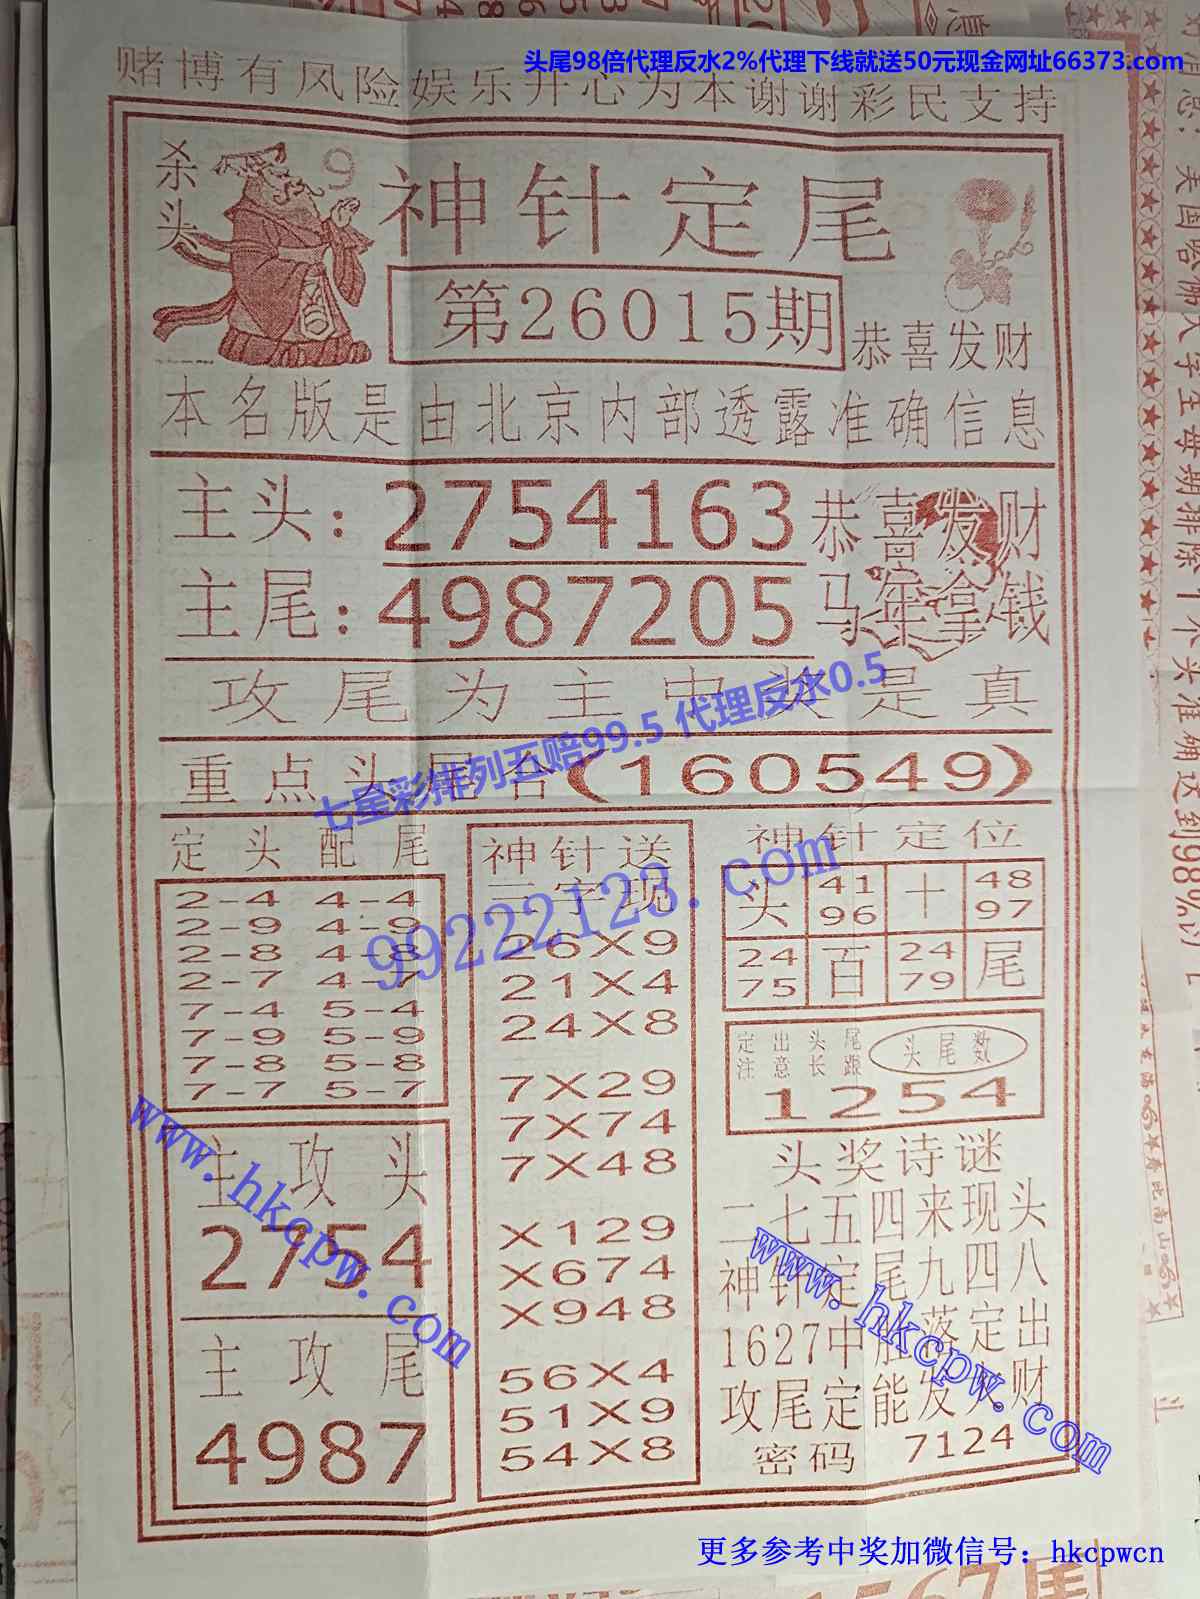 头尾98倍代理反水2%代理下线就送50元现金网址66373.com
赌博有风险娱乐开心为本谢谢彩民支持
杀头
9
神针定尾
第26015期
恭喜发财
本名版是由北京内部透露准确信息
主头：2754163
恭喜发财
主尾：4987205
马年拿钱
攻尾为主中头是真
七星彩排列五赔99.5 代理反水0.5
重点头尾合(160549)
定头配尾
2-4 4-4
2-9 4-9
2-8 4-8
2-7 4-7
7-4 5-4
7-9 5-9
7-8 5-8
7-7 5-7
99222123.com
主攻头
2754
主攻尾
4987
神针送
三字现
26X9
21X4
24X8
7X29
7X74
7X48
X129
X674
X948
56X4
51X9
54X8
神针定位
头 41 十 48
96 97
24 百 24 尾
75 79
定出头尾
注意长跟
头尾数
1254
头奖诗谜
二七五四来现头
神针定尾九四八
1627中胜落定出
攻尾定能发大财
密码 7124
www.hkcpw.com
www.hkcpw.com
更多参考中奖加微信号：hkcpwcn